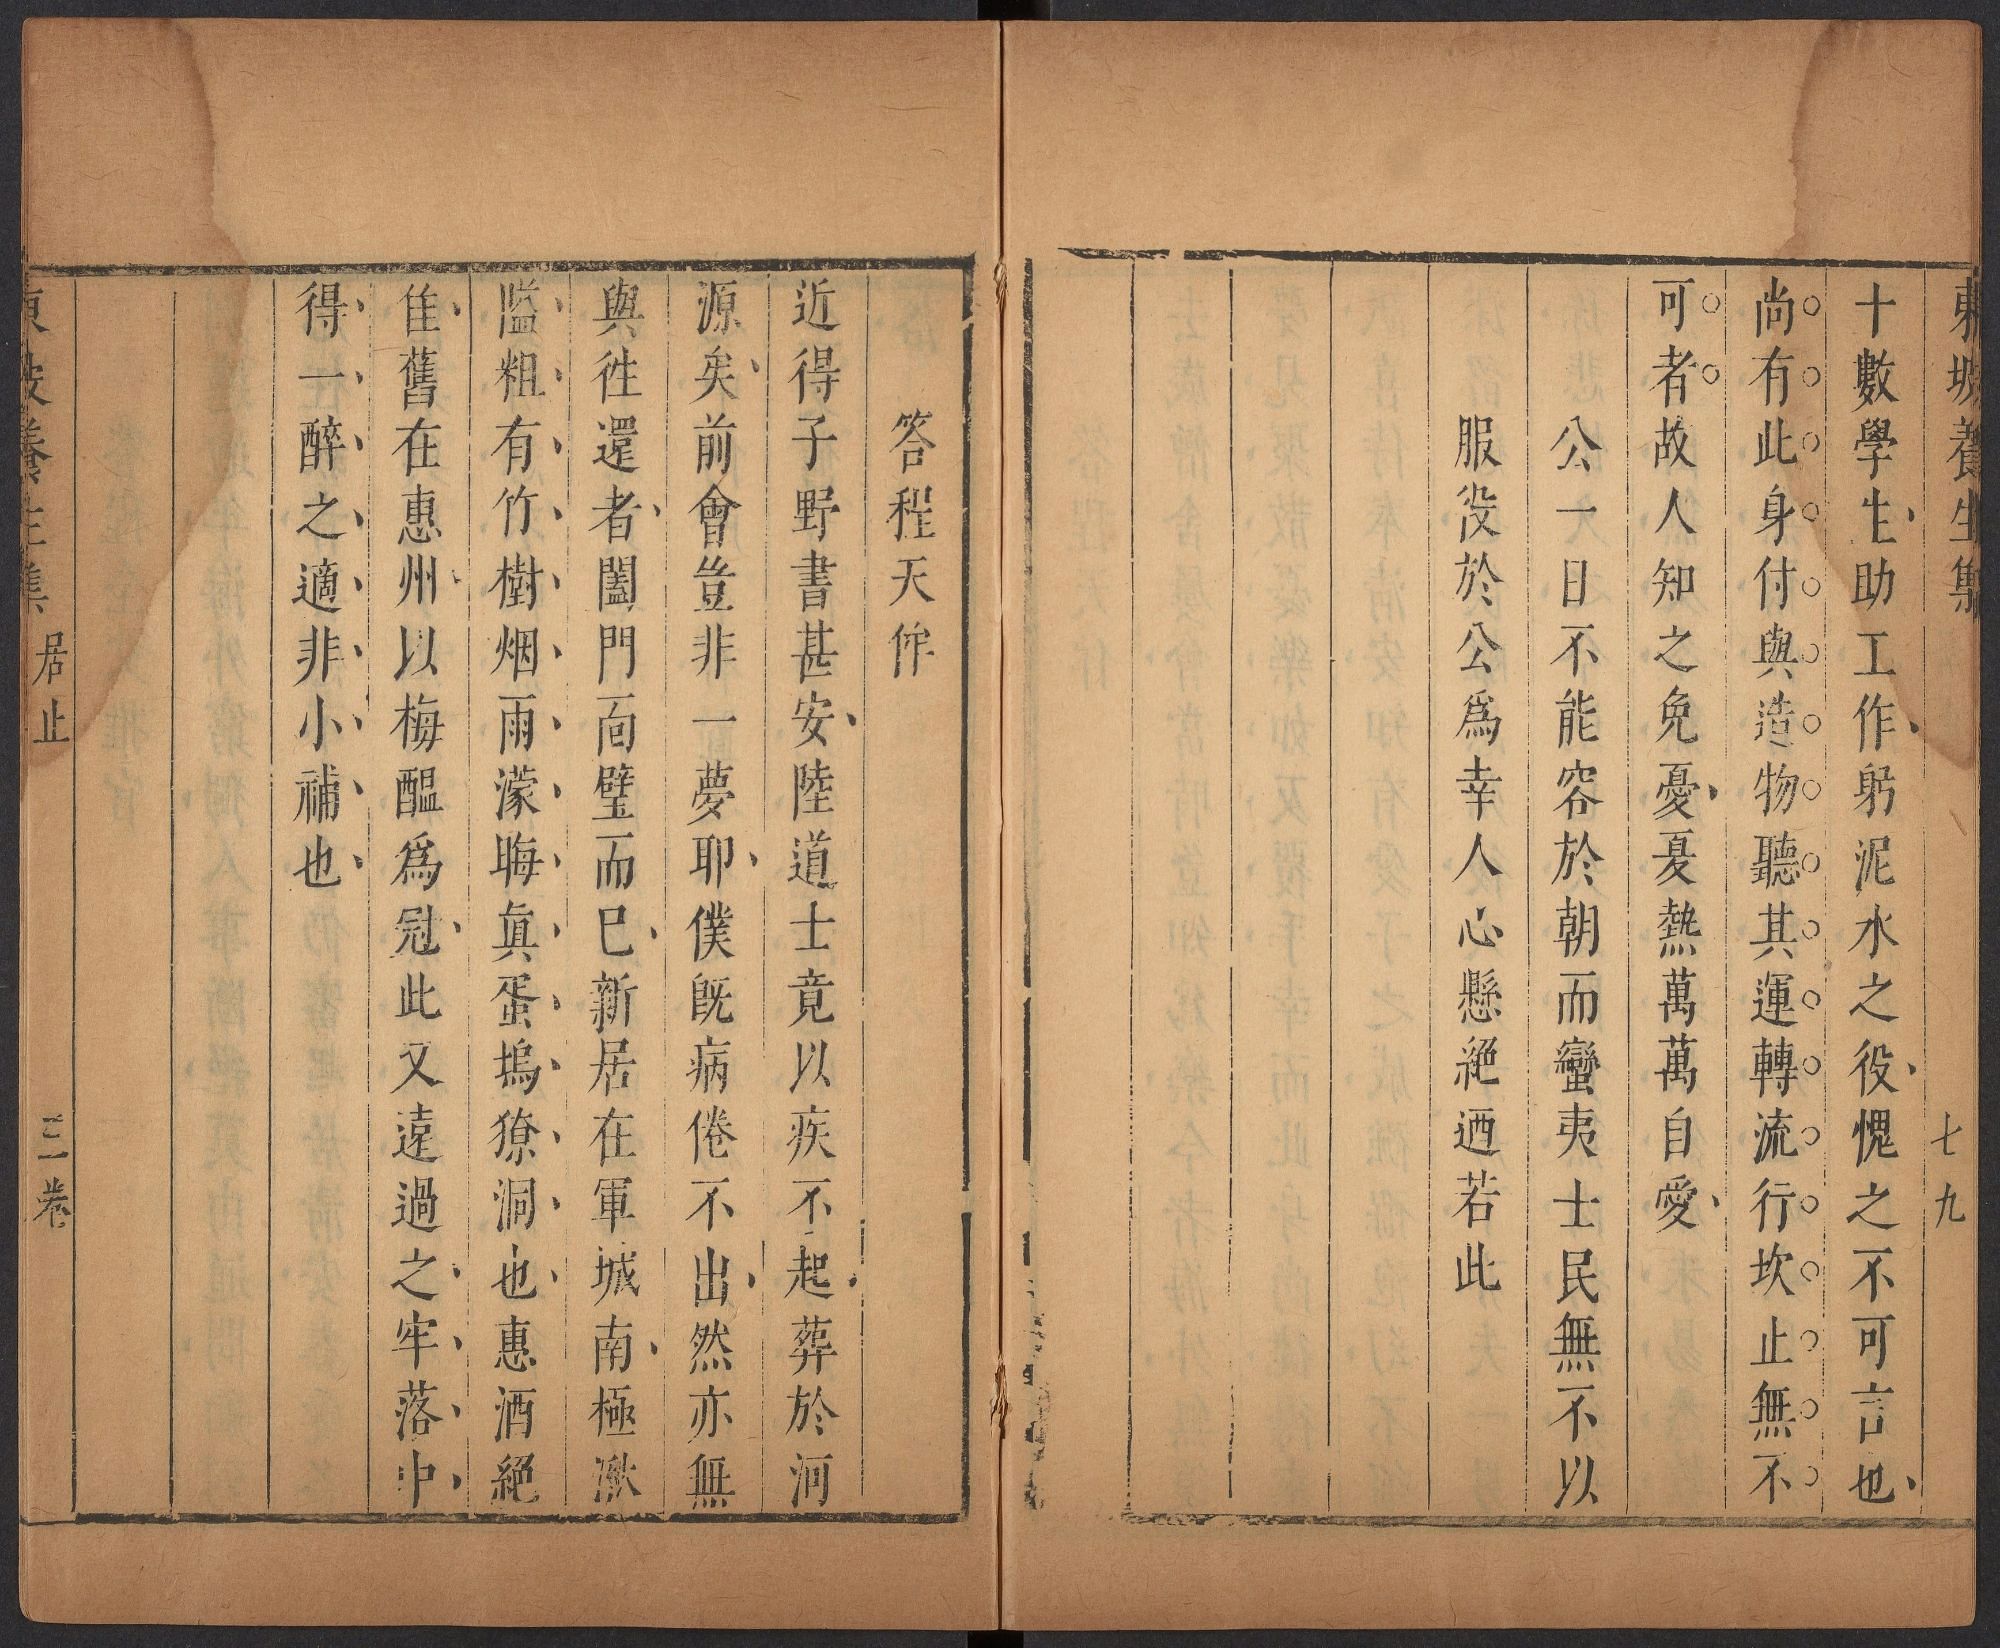 東坡養生集
七九
十數學生助工作躬泥水之役愧之不可言也
尚有此身付與造物聽其運轉流行坎止無不
可者故人知之免憂憂熱萬萬自愛
公一日不能容於朝而蠻夷士民無不以
服役於公為幸人心懸絕迺若此
答程天侔
近得子野書甚安陸道士竟以疾不起葬於河
源矣前會豈非一夢耶僕既病倦不出然亦無
與徃還者闔門面壁而已新居在軍城南極湫
隘粗有竹樹烟雨濛晦眞蜑塢獠洞也惠酒絕
佳舊在惠州以梅醞為冠此又遠過之牢落中
得一醉之適非小補也
東坡養生集
居止
三卷